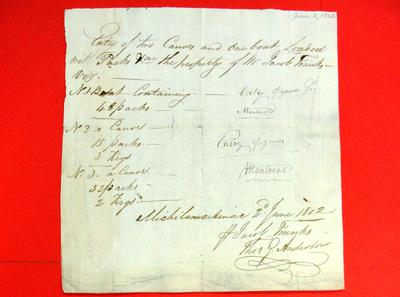 June 2, 1802
Entry of two Canoes and one boat Loaded
with Packs the property of Mr Jacob Franks
Viz.
No 1 Boat Containing
48 packs
Entry of
Montreal
No 2 a Canoe
15 packs
3 Kegs
Entry of
No 3. a Canoe
32 packs
2 Kegs
Montreal
Michilimackinac 2d June 1802
Jacob Franks
Thos G Anderson